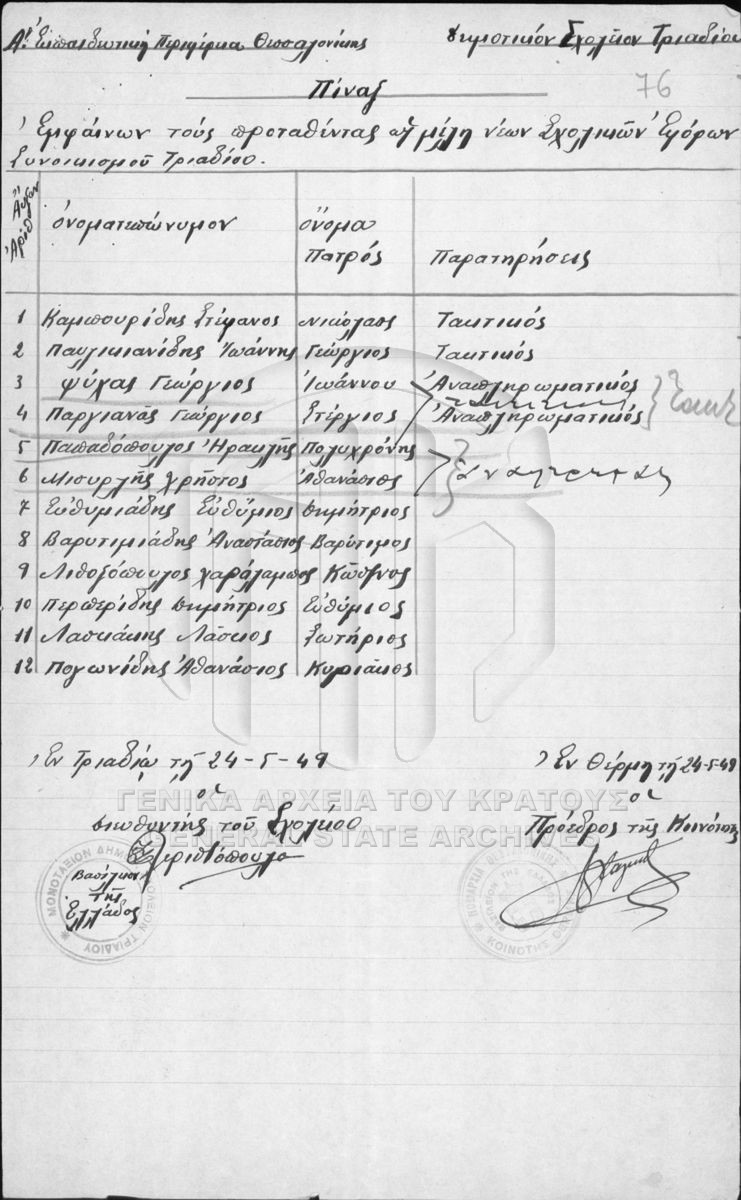 Α'. Εκπαιδευτική Περιφέρεια Θεσσαλονίκης
Δημοτικόν Σχολείον Τριαδίου
Πίναξ
76
Ἐμφαίνων τούς προταθέντας μέλη νέων Σχολικῶν Ἐφόρων
Συνοικισμοῦ Τριαδίου.
Αὔξων Ἀριθ
ὀνοματεπώνυμον
ὄνομα Πατρός
Παρατηρήσεις
1 Καμπουρίδης Στέφανος Νικόλαος Τακτικός
2 Παυλικιανίδης Ἰωάννης Γεώργιος Τακτικός
3 Ψύχας Γεώργιος Ἰωάννου Ἀναπληρωματικός
4 Παργιανᾶς Γεώργιος Στέργιος Ἀναπληρωματικός
5 Παπαδόπουλος Ἡρακλῆς Πολυχρόνης
6 Μισυρλῆς Χρῆστος Ἀθανάσιος
7 Εὐθυμιάδης Εὐθύμιος Δημήτριος
8 Βαρυτιμιάδης Ἀναστάσιος Βαρύτιμος
9 Λιθοξόπουλος Χαράλαμπος Κων)νος
10 Περπερίδης Δημήτριος Εὐθύμιος
11 Λασκάκης Λάσκιος Σωτήριος
12 Πογωνίδης Ἀθανάσιος Κυριάκος
Ἐν Τριαδίῳ τῇ 24-5-49
Ἐν Θέρμῃ τῇ 24-5-49
ὁ
ὁ
Διευθυντής τοῦ Σχολείου
Πρόεδρος τῆς Κοινότητος
ΓΕΝΙΚΑ ΑΡΧΕΙΑ ΤΟΥ ΚΡΑΤΟΥΣ
GENERAL STATE ARCHIVES
ΜΟΝΟΤΑΞΙΟΝ ΔΗΜ ΣΧΟΛΕΙΟΝ ΤΡΙΑΔΙΟΥ
Βασίλειον
τῆς
Ἑλλάδος
ΚΟΙΝΟΤΗΣ